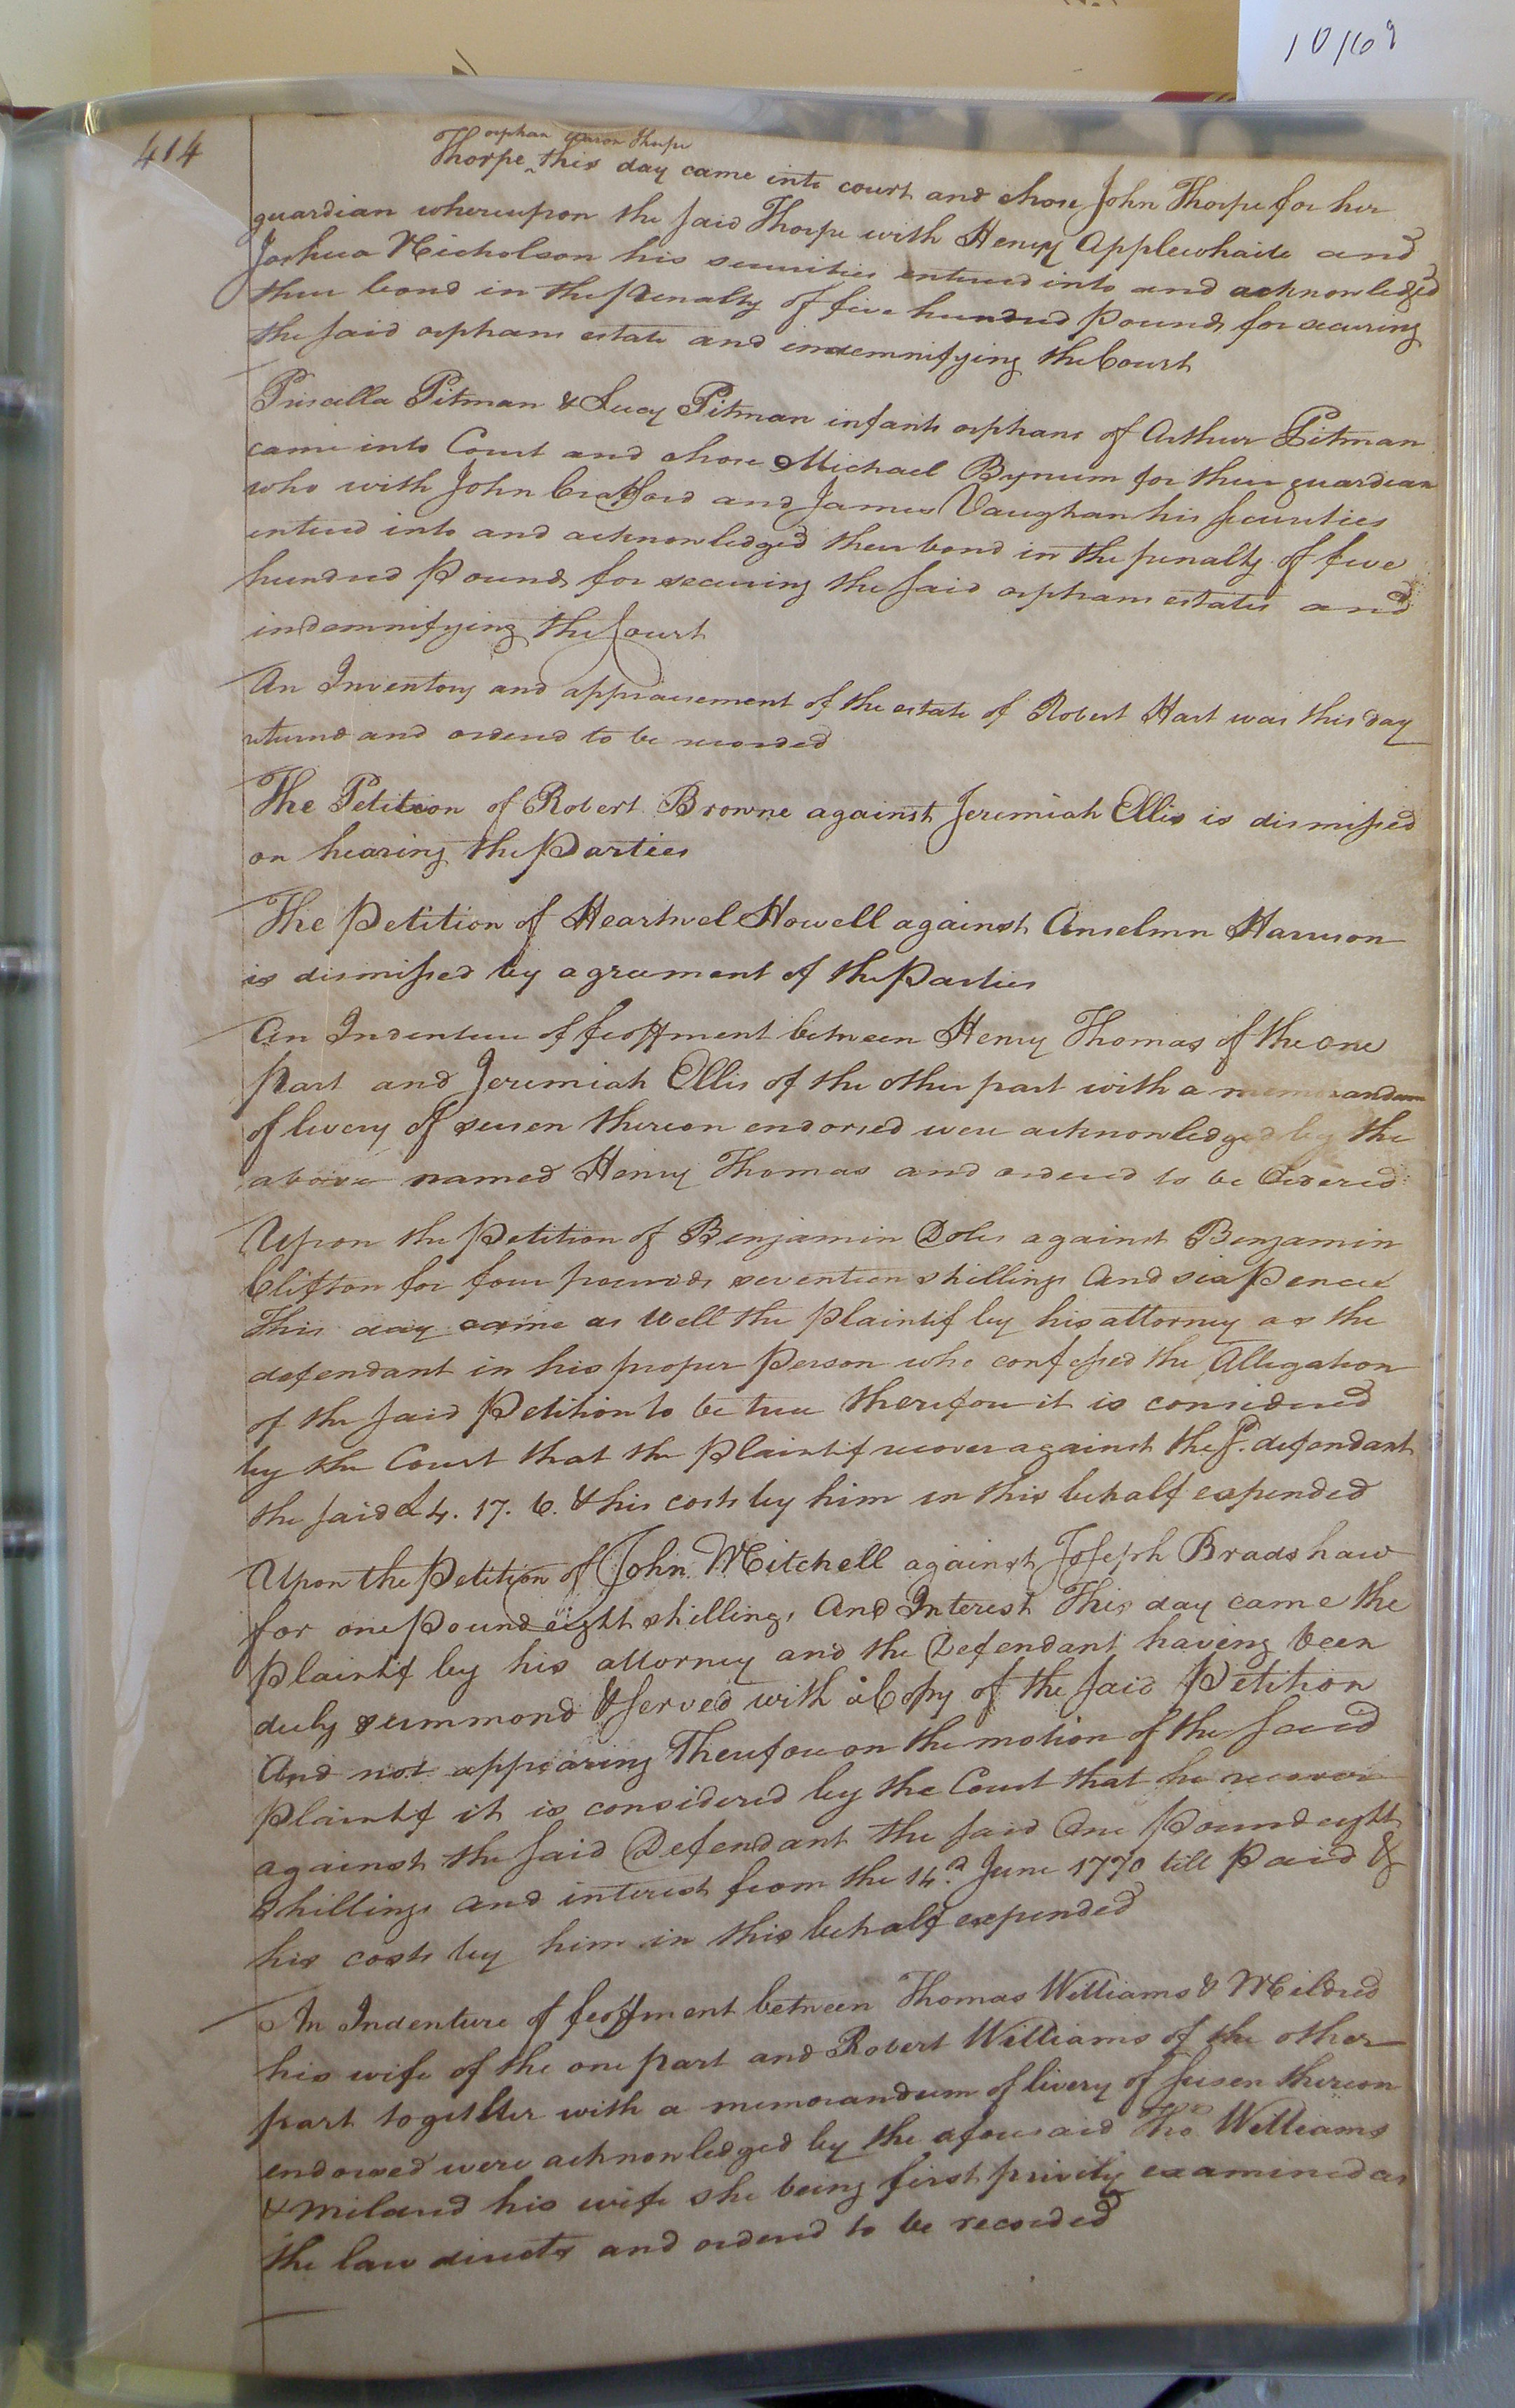 10/69
414
orphan Aaron Thorpe
Thorpe ‸ this day came into court and chose John Thorpe for her
guardian whereupon the said Thorpe with Henry Applewhaite and
Joshua Nicholson his securities entered into and acknowledged
their bond in the Penalty of five hundred Pounds for securing
the said orphans estate and indemnifying the Court
Priscilla Pitman & Lucy Pitman infants orphans of Arthur Pitman
came into Court and chose Michael Bynum for their guardian
who with John Crafford and James Vaughan his securities
entered into and acknowledged their bond in the penalty of five
hundred Pounds for securing the said orphans estates and
indemnifying the Court
An Inventory and appraisement of the estate of Robert Hart was this day
returnd and ordered to be recorded
The Petition of Robert Browne against Jeremiah Ellis is dismissed
on hearing the Parties
The Petition of Heartwel Howell against Anselmn Harrison
is dismissed by agreement of the Parties
An Indenture of feoffment between Henry Thomas of the one
Part and Jeremiah Ellis of the other part with a memorandum
of livery of seisen thereon endorsed were acknowledged by the
above named Henry Thomas and ordered to be
Upon the Petition of Benjamin Doles against Benjamin
Clifton for four pounds seventeen shillings And six Pence
This day came as well the Plaintif by his attorney as the
defendant in his proper Person who confessed the Allegation
of the said Petition to be true therefore it is considered
by the Court that the Plaintif recover against the sd. defendant
the said £4. 17. 6. & his costs by him in this behalf expended
Upon the Petition of John Mitchell against Joseph Bradshaw
for one Pound eight shillings And Interest This day came the
Plaintif by his attorney and the Defendant having been
duly summond & served with a Copy of the said Petition
And not appearing Therefore on the motion of the said
Plaintif it is considered by the Court that he recover
against the said Defendant the said One Pound eight
Shillings and interest from the 14.th June 1770 till Paid &
his costs by him in this behalf expended
An Indenture of feoffment between Thomas Williams & Mildred
his wife of the one part and Robert Williams of the other
part together with a memorandum of livery of seisen thereon
endorsed were acknowledged by the aforesaid Tho Williams
& Mildred his wife she being first privily examined as
the law directs and ordered to be recorded